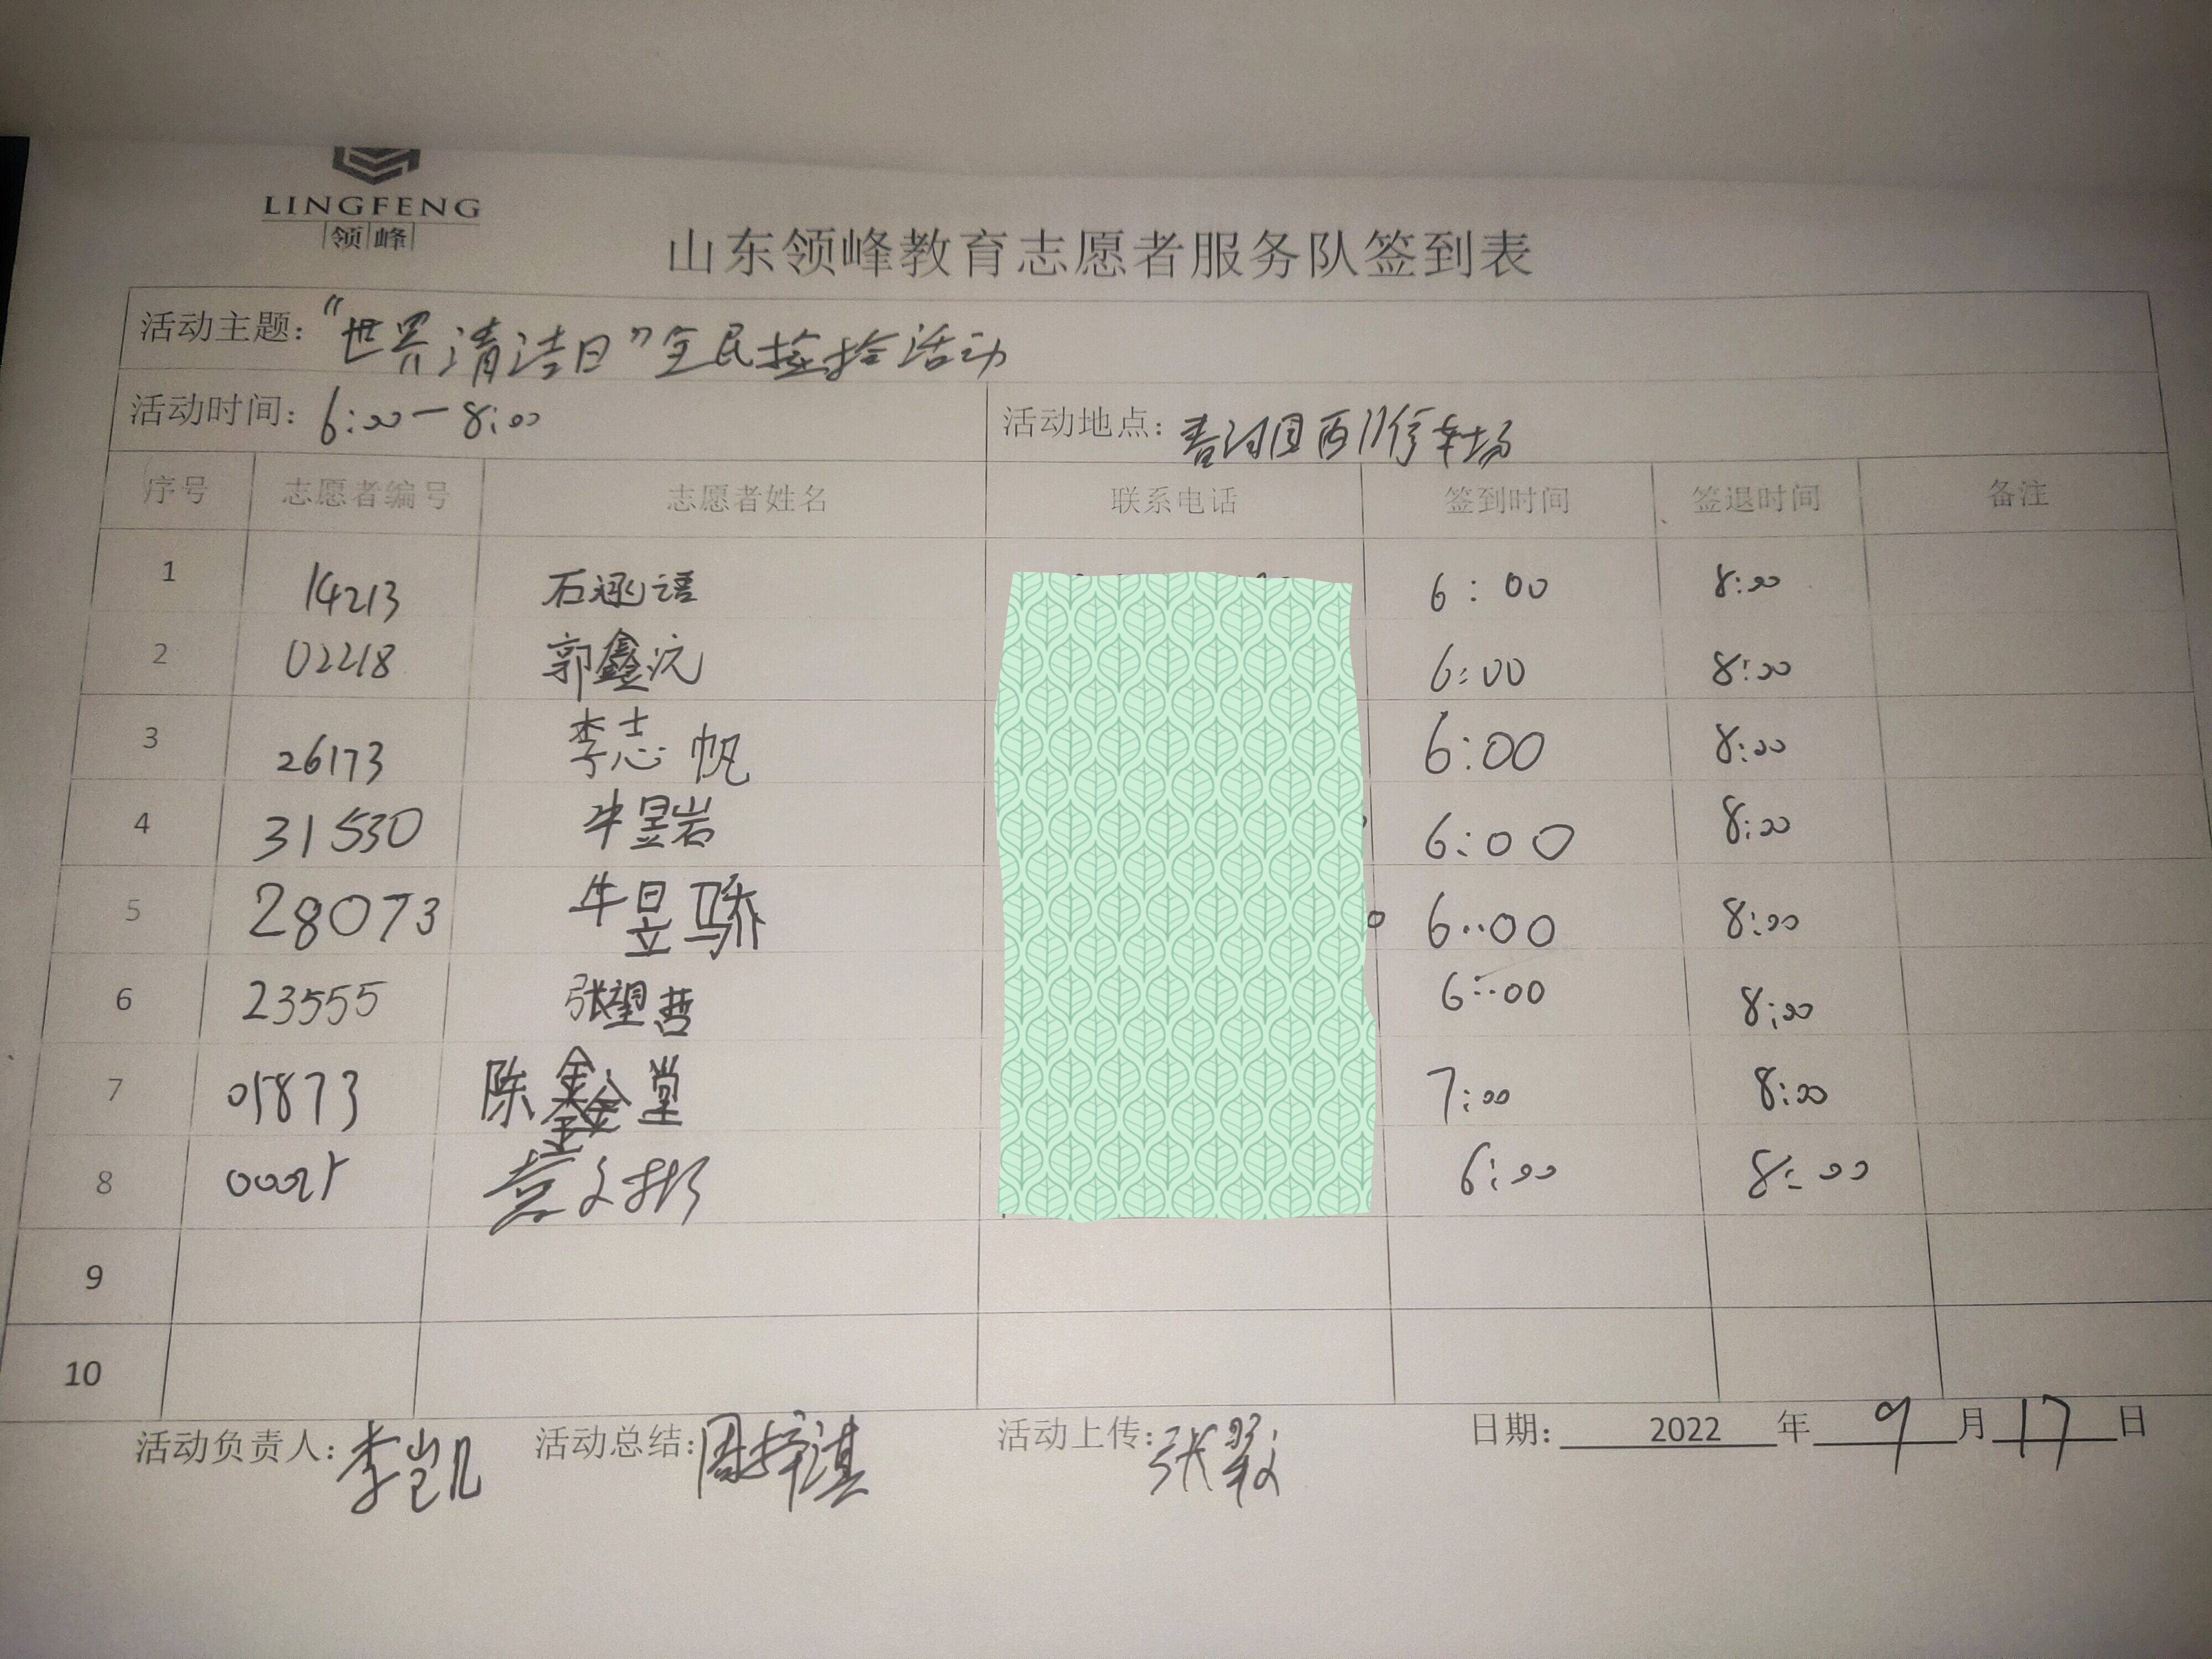 LINGFENG
领峰
山东领峰教育志愿者服务队签到表
活动主题：“世界清洁日”全民捡拾活动
活动时间：6:00—8:00 活动地点：西门停车场
序号 志愿者编号 志愿者姓名 联系电话 签到时间 签退时间 备注
1 14213 石涵语 6:00 8:00
2 02218 郭鑫沅 6:00 8:00
3 26173 李志帆 6:00 8:00
4 31530 牛昱岩 6:00 8:00
5 28073 牛昱骄 6:00 8:00
6 23555 张望哲 6:00 8:00
7 01873 陈鑫堂 7:00 8:00
8 6:00 8:00
9
10
活动负责人：李凯 活动总结：周梓淇 活动上传：张 日期：2022年9月17日